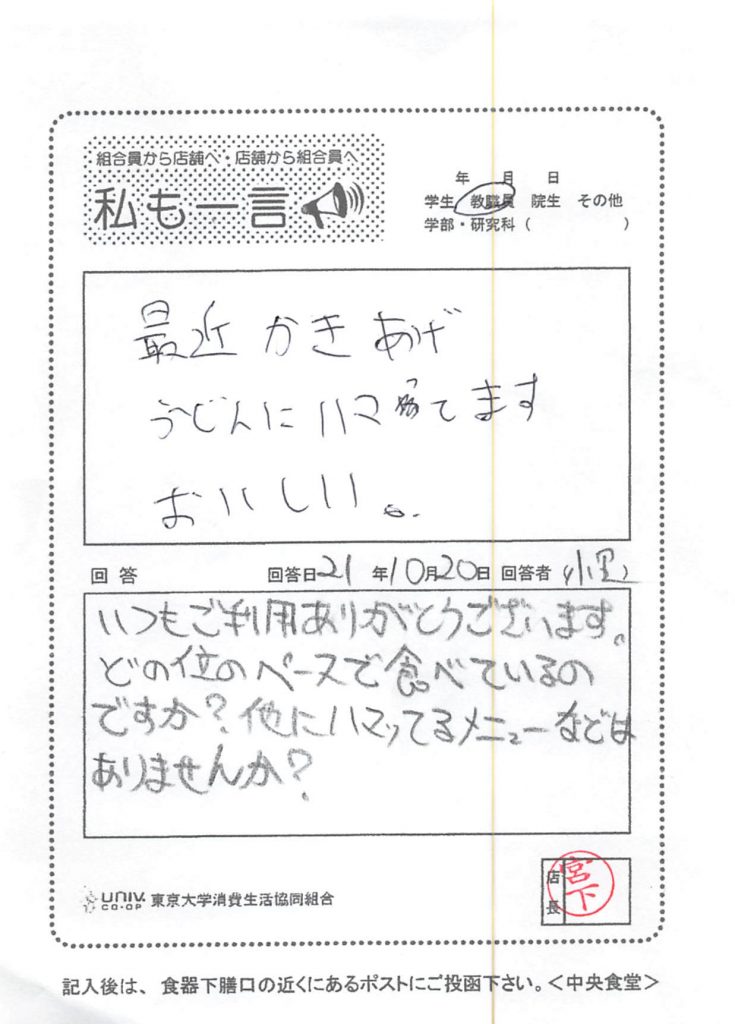 組合員から店舗へ・店舗から組合員へ
私も一言
年 月 日
学生 教職員 院生 その他
学部・研究科( )
最近 かきあげ
うどんにハマってます
おいしい。
回答 回答日21年10月20日 回答者(小里)
いつもご利用ありがとうございます。
どの位のペースで食べているの
ですか?他にハマッてるメニューなどは
ありませんか?
店長
宮下
UNIV. CO-OP 東京大学消費生活協同組合
記入後は、食器下膳口の近くにあるポストにご投函下さい。<中央食堂>